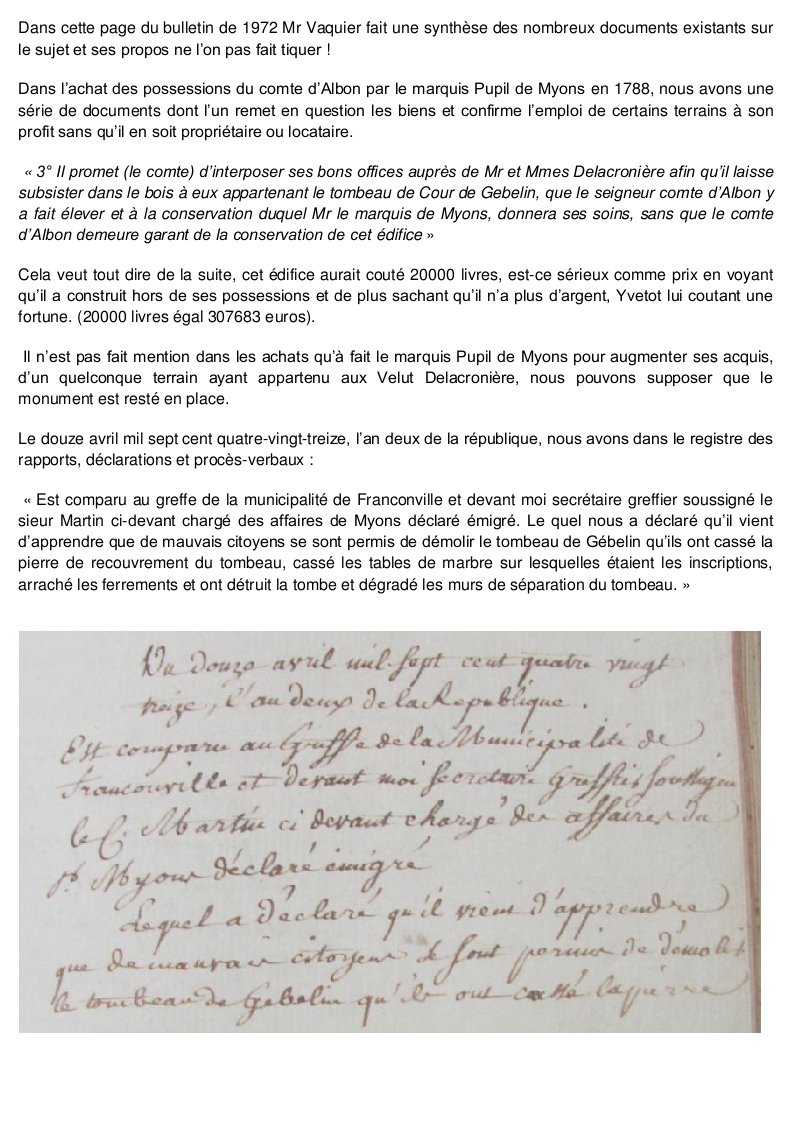 Dans cette page du bulletin de 1972 Mr Vaquier fait une synthèse des nombreux documents existants sur
le sujet et ses propos ne l’on pas fait tiquer !
Dans l’achat des possessions du comte d’Albon par le marquis Pupil de Myons en 1788, nous avons une
série de documents dont l’un remet en question les biens et confirme l’emploi de certains terrains à son
profit sans qu’il en soit propriétaire ou locataire.
« 3° Il promet (le comte) d’interposer ses bons offices auprès de Mr et Mmes Delacronière afin qu’il laisse
subsister dans le bois à eux appartenant le tombeau de Cour de Gebelin, que le seigneur comte d’Albon y
a fait élever et à la conservation duquel Mr le marquis de Myons, donnera ses soins, sans que le comte
d’Albon demeure garant de la conservation de cet édifice »
Cela veut tout dire de la suite, cet édifice aurait couté 20000 livres, est-ce sérieux comme prix en voyant
qu’il a construit hors de ses possessions et de plus sachant qu’il n’a plus d’argent, Yvetot lui coutant une
fortune. (20000 livres égal 307683 euros).
Il n’est pas fait mention dans les achats qu’à fait le marquis Pupil de Myons pour augmenter ses acquis,
d’un quelconque terrain ayant appartenu aux Velut Delacronière, nous pouvons supposer que le
monument est resté en place.
Le douze avril mil sept cent quatre-vingt-treize, l’an deux de la république, nous avons dans le registre des
rapports, déclarations et procès-verbaux :
« Est comparu au greffe de la municipalité de Franconville et devant moi secrétaire greffier soussigné le
sieur Martin ci-devant chargé des affaires de Myons déclaré émigré. Le quel nous a déclaré qu’il vient
d’apprendre que de mauvais citoyens se sont permis de démolir le tombeau de Gébelin qu’ils ont cassé la
pierre de recouvrement du tombeau, cassé les tables de marbre sur lesquelles étaient les inscriptions,
arraché les ferrements et ont détruit la tombe et dégradé les murs de séparation du tombeau. »
Du douze avril mil sept cent quatre vingt
treize, l'an deux de la Republique.
Est comparu au Greffe de la Municipalité de
Franconville et devant moi secretaire Greffier soussigné
le C. Martin ci devant chargé des affaires du
Sr. Myons déclaré émigré
Lequel a déclaré qu'il vient d'apprendre
que de mauvais citoyens se sont permis de démolir
le tombeau de Gebelin qu'ils ont cassé la pierre